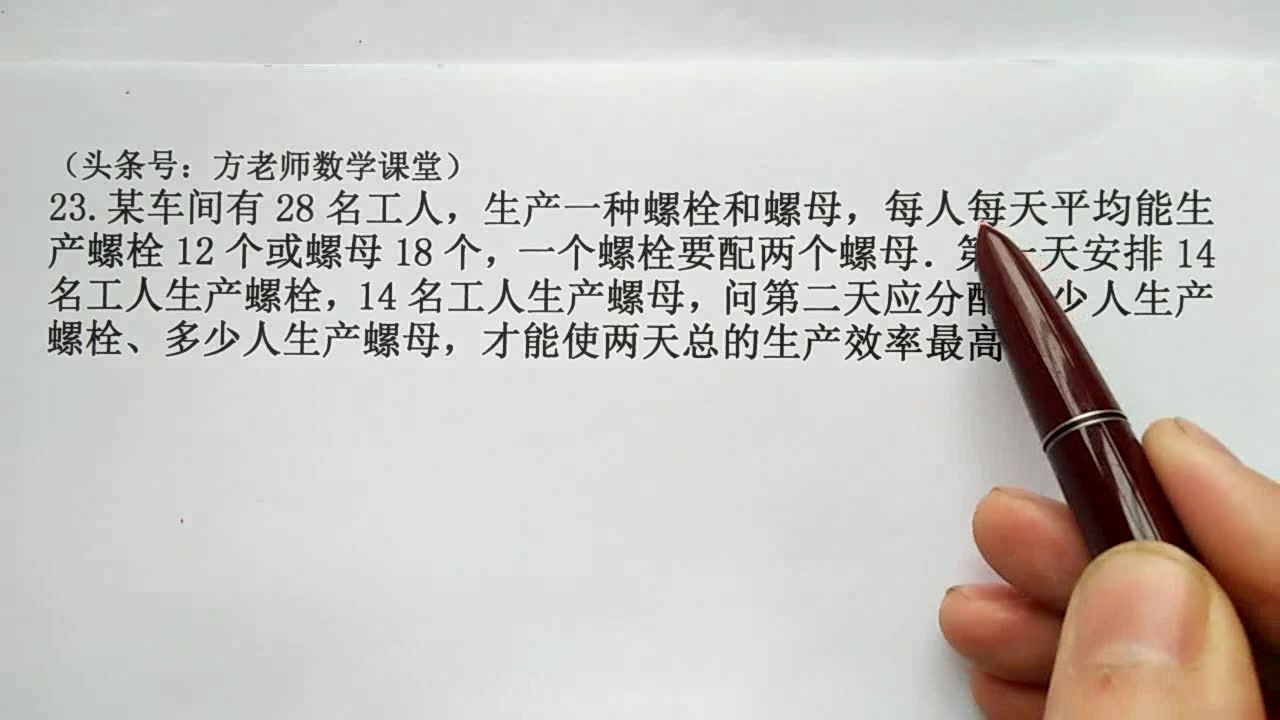 （头条号：方老师数学课堂）
23.某车间有 28 名工人，生产一种螺栓和螺母，每人每天平均能生
产螺栓 12 个或螺母 18 个，一个螺栓要配两个螺母．第一天安排 14
名工人生产螺栓，14 名工人生产螺母，问第二天应分配少人生产
螺栓、多少人生产螺母，才能使两天总的生产效率最高